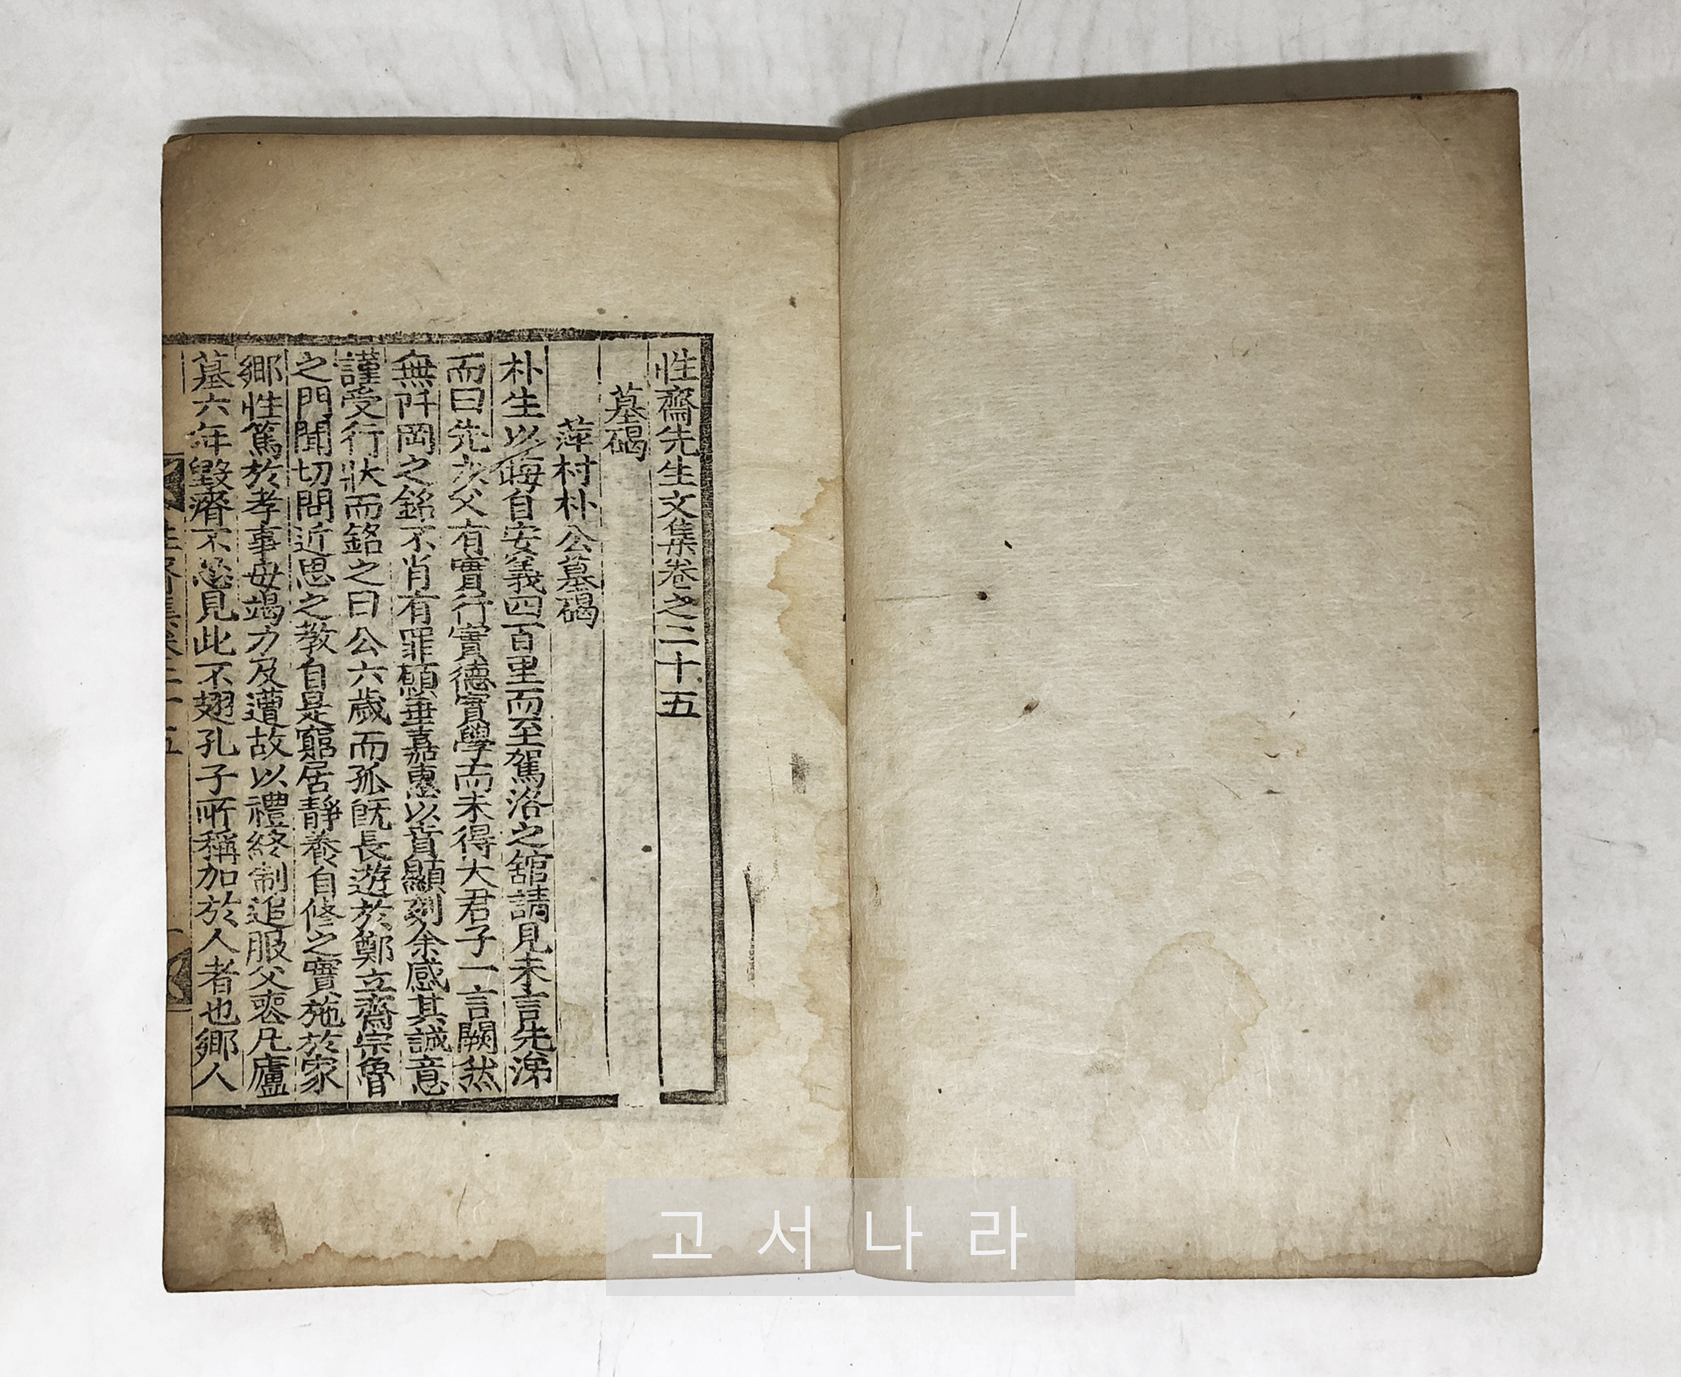 性齋先生文集卷之二十五
墓碣
萍村朴公墓碣
朴生以晦自安義四百里而至駕洛之舘請見未言先涕
而曰先大父有實行實德實學而未得大君子一言闕然
無阡岡之銘不肖有罪願垂嘉惠以賁顯刻余感其誠意
謹受行狀而銘之曰公六歲而孤旣長遊於鄭立齋宗魯
之門聞切問近思之教自是窮居靜養自修之實施於家
鄉性篤於孝事母竭力及遭故以禮終制追服父喪凡廬
墓六年毀瘠不忍見此不翅孔子所稱加於人者也鄉人
性齋集卷二十五
고서나라